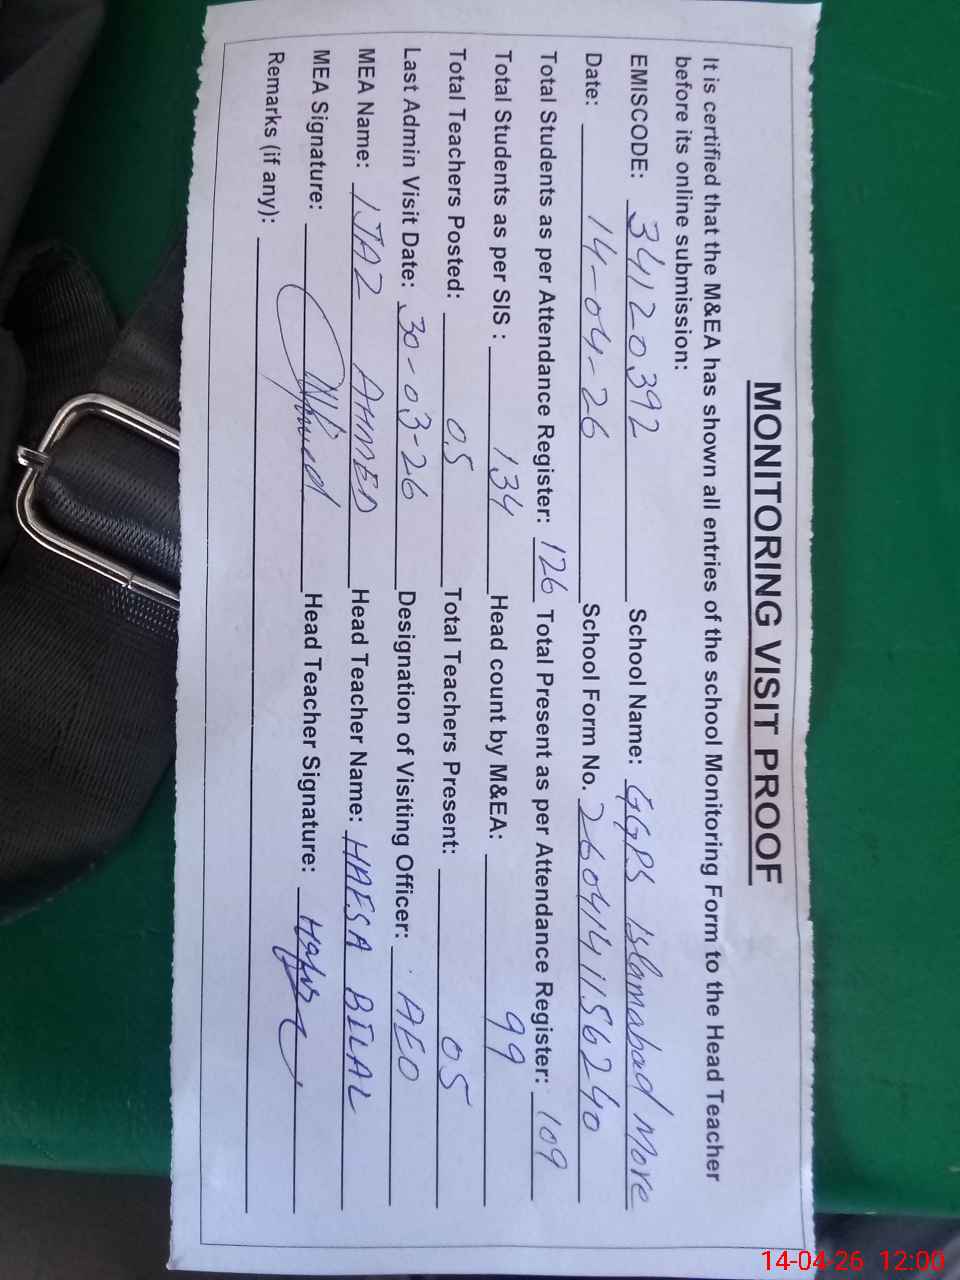 MONITORING VISIT PROOF
It is certified that the M&EA has shown all entries of the school Monitoring Form to the Head Teacher
before its online submission:
EMISCODE: 34120392 School Name: GGPS Islamabad More
Date: 14-04-26 School Form No. 2604141156240
Total Students as per Attendance Register: 126 Total Present as per Attendance Register: 109
Total Students as per SIS : 134 Head count by M&EA: 99
Total Teachers Posted: 05 Total Teachers Present: 05
Last Admin Visit Date: 30-03-26 Designation of Visiting Officer: AEO
MEA Name: IJAZ AHMED Head Teacher Name: HAFSA BILAL
MEA Signature: Head Teacher Signature:
Remarks (if any):
14-04-26 12:00